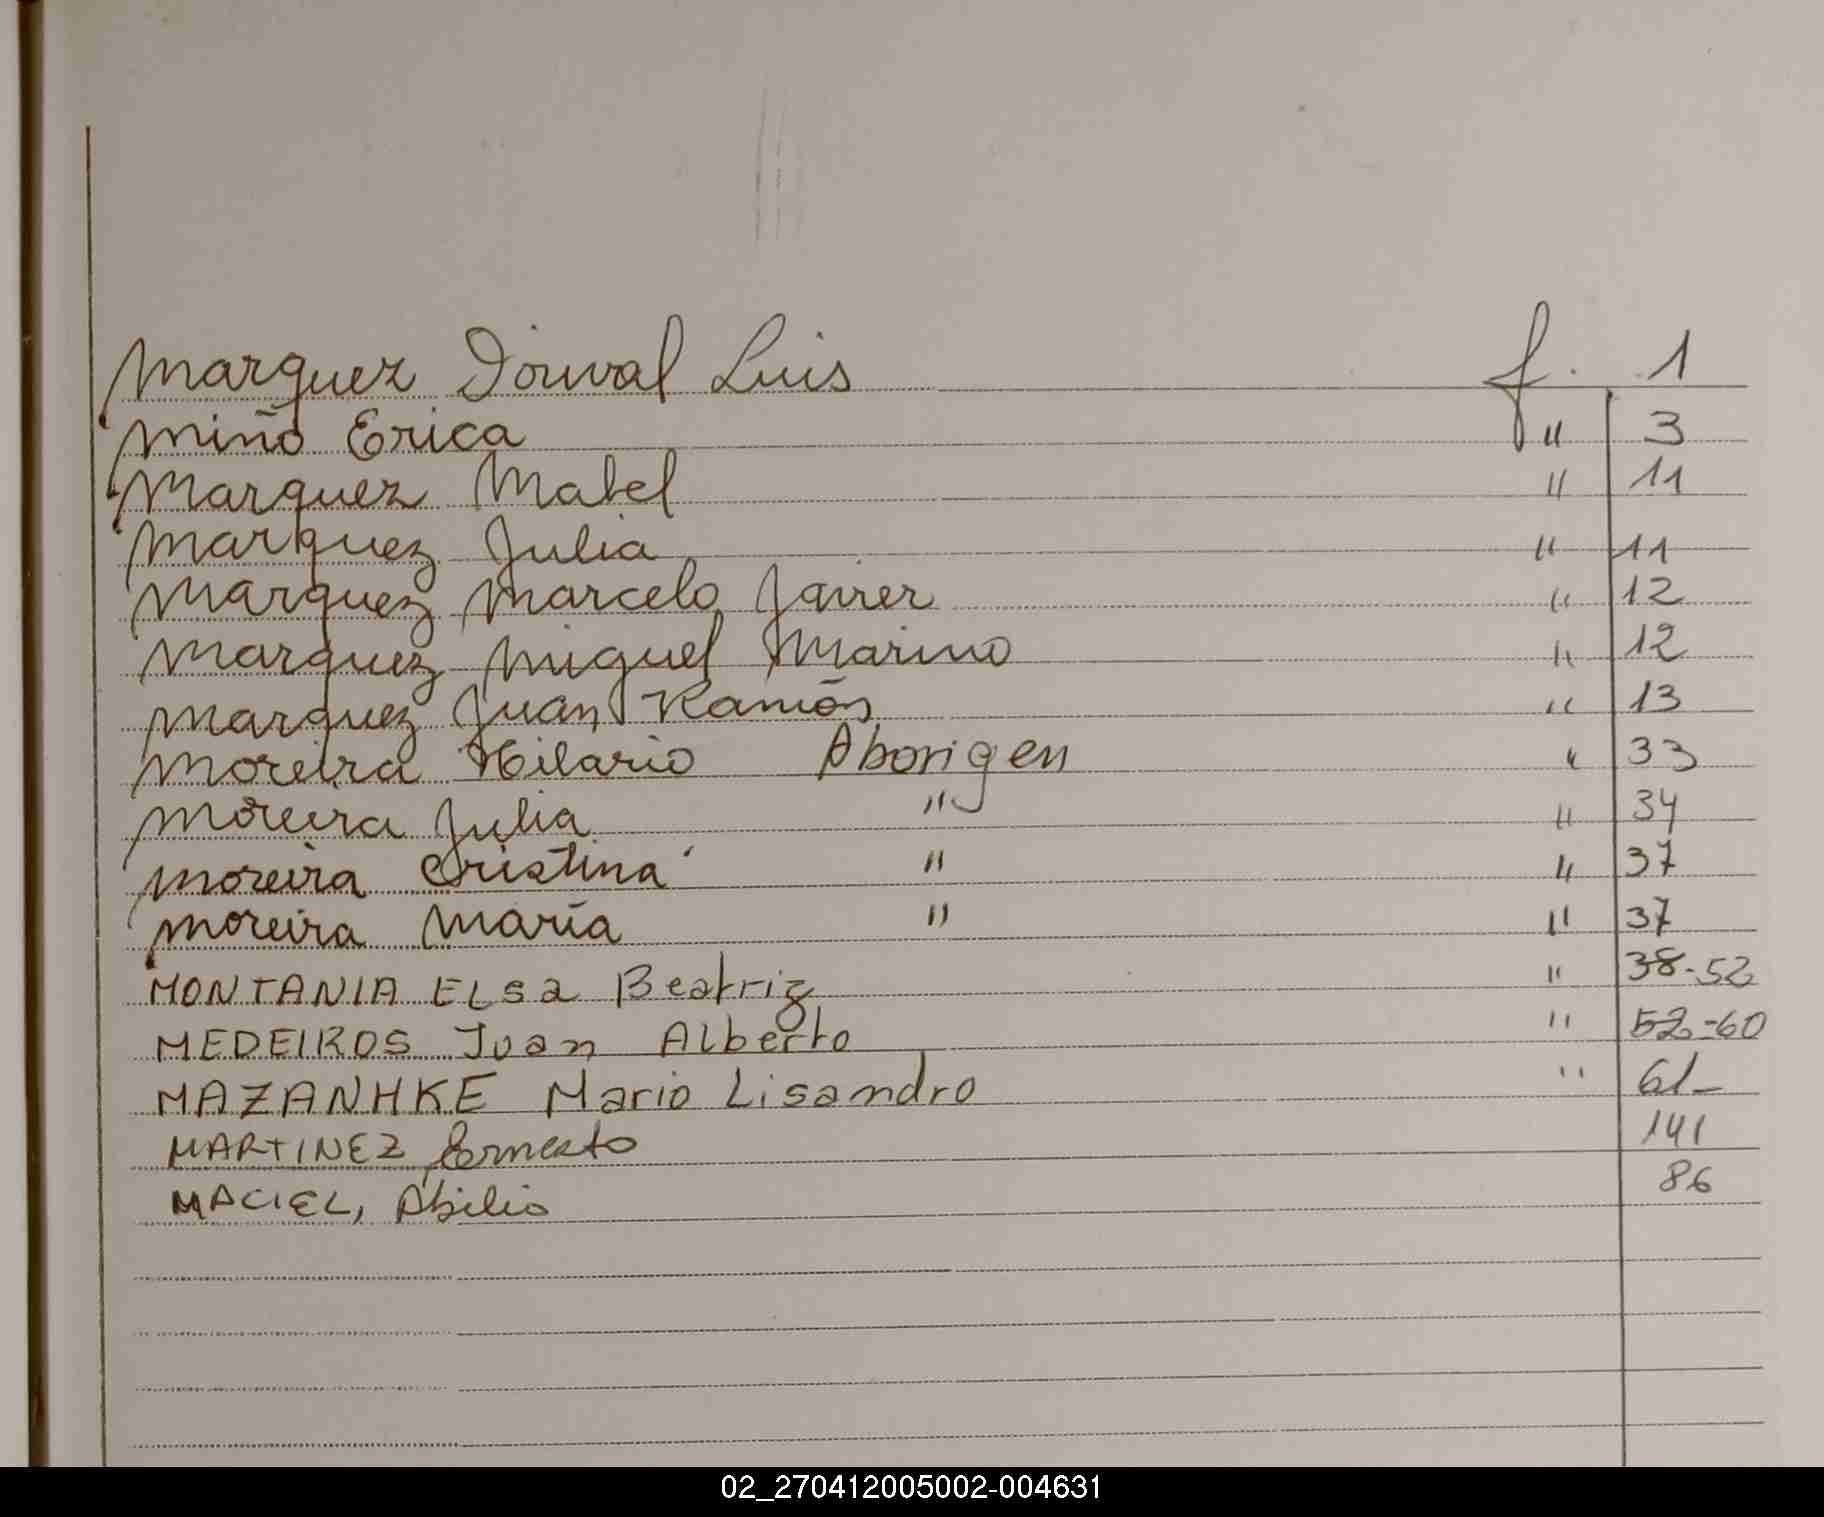 Marquez Dorval Luis f. 1
Miño Erica " 3
Marquez Mabel " 11
Marquez Julia " 11
Marquez Marcelo Javier " 12
Marquez Miguel Marino " 12
Marquez Juan Ramón " 13
Moreira Hilario Aborigen " 33
Moreira Julia " " 34
Moreira Cristina " " 37
Moreira María " " 37
MONTANIA ELSA Beatriz " 38-52
MEDEIROS Juan Alberto " 52-60
MAZANHKE Mario Lisandro " 61-
MARTINEZ Ernesto 141
MACIEL, Abilio 86
02_270412005002-004631